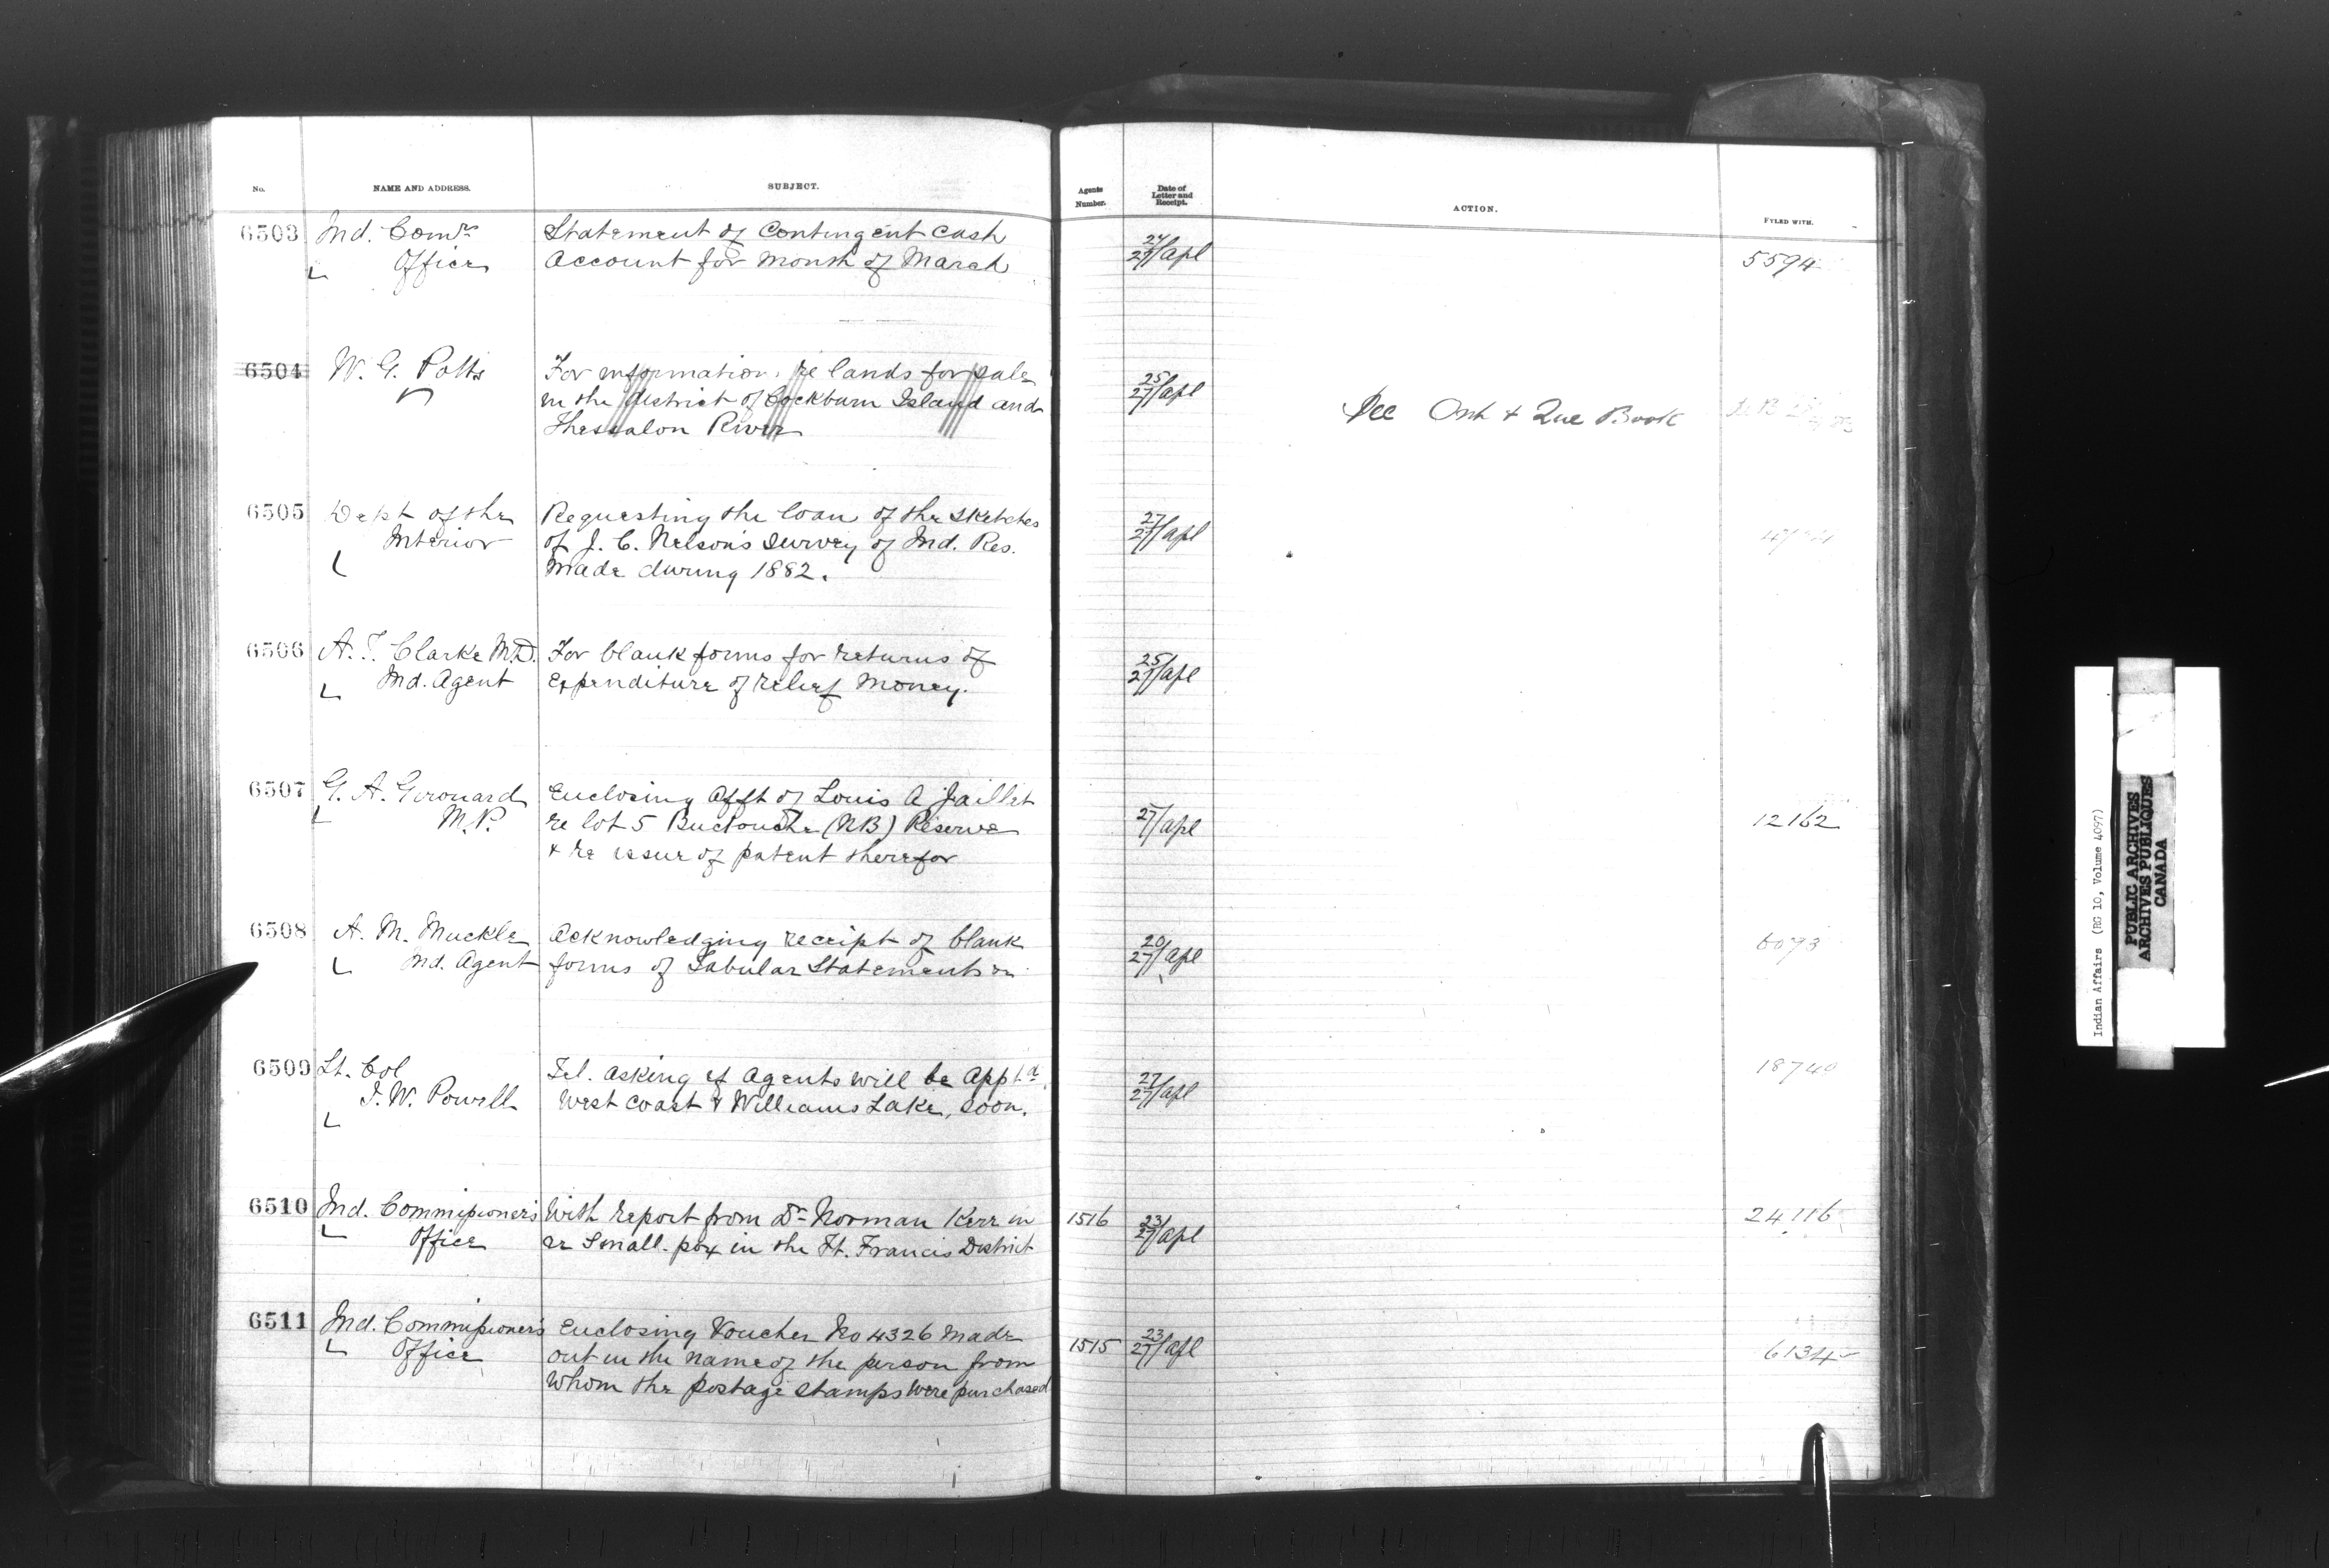 No. NAME AND ADDRESS. SUBJECT. Agents Number. Date of Letter and Receipt. ACTION. FYLED WITH.
6503 Ind. Comrs Statement of Contingent Cash 24/27/apl 5594
Office Account for month of March
6504 W. G. Potts For information, re lands for sale 25/27/apl
in the district of Cockburn Island and See Ont & Que Book
Thessalon River
6505 Dept of the Requesting the loan of the sketches 27/27/apl
Interior of J. C. Nelson's survey of Ind. Res.
made during 1882.
6506 A. T. Clarke M.D. For blank forms for returns of 25/27/apl
Ind. Agent expenditure of relief money.
6507 G. A. Girouard Enclosing Afft of Louis A Jaillet
M.P. re lot 5 Buctouche (NB) Reserve 27/apl 12162
& re issue of patent therefor
6508 A. M. Muckle Acknowledging receipt of blank 20/27/apl 6073
Ind. Agent forms of Tabular Statements
6509 Lt. Col Tel. asking if Agents will be Apptd 27/27/apl 18740
I. W. Powell West Coast & Williams Lake, soon.
6510 Ind. Commissioner's With report from Dr Norman Kerr in 1516 23/27/apl 24116
Office re Small-pox in the Ft. Francis District
6511 Ind. Commissioner's Enclosing Voucher No 4326 made 1515 23/27/apl 6134
Office out in the name of the person from
whom the postage stamps were purchased
Indian Affairs (RG 10, Volume 4097)
PUBLIC ARCHIVES
ARCHIVES PUBLIQUES
CANADA